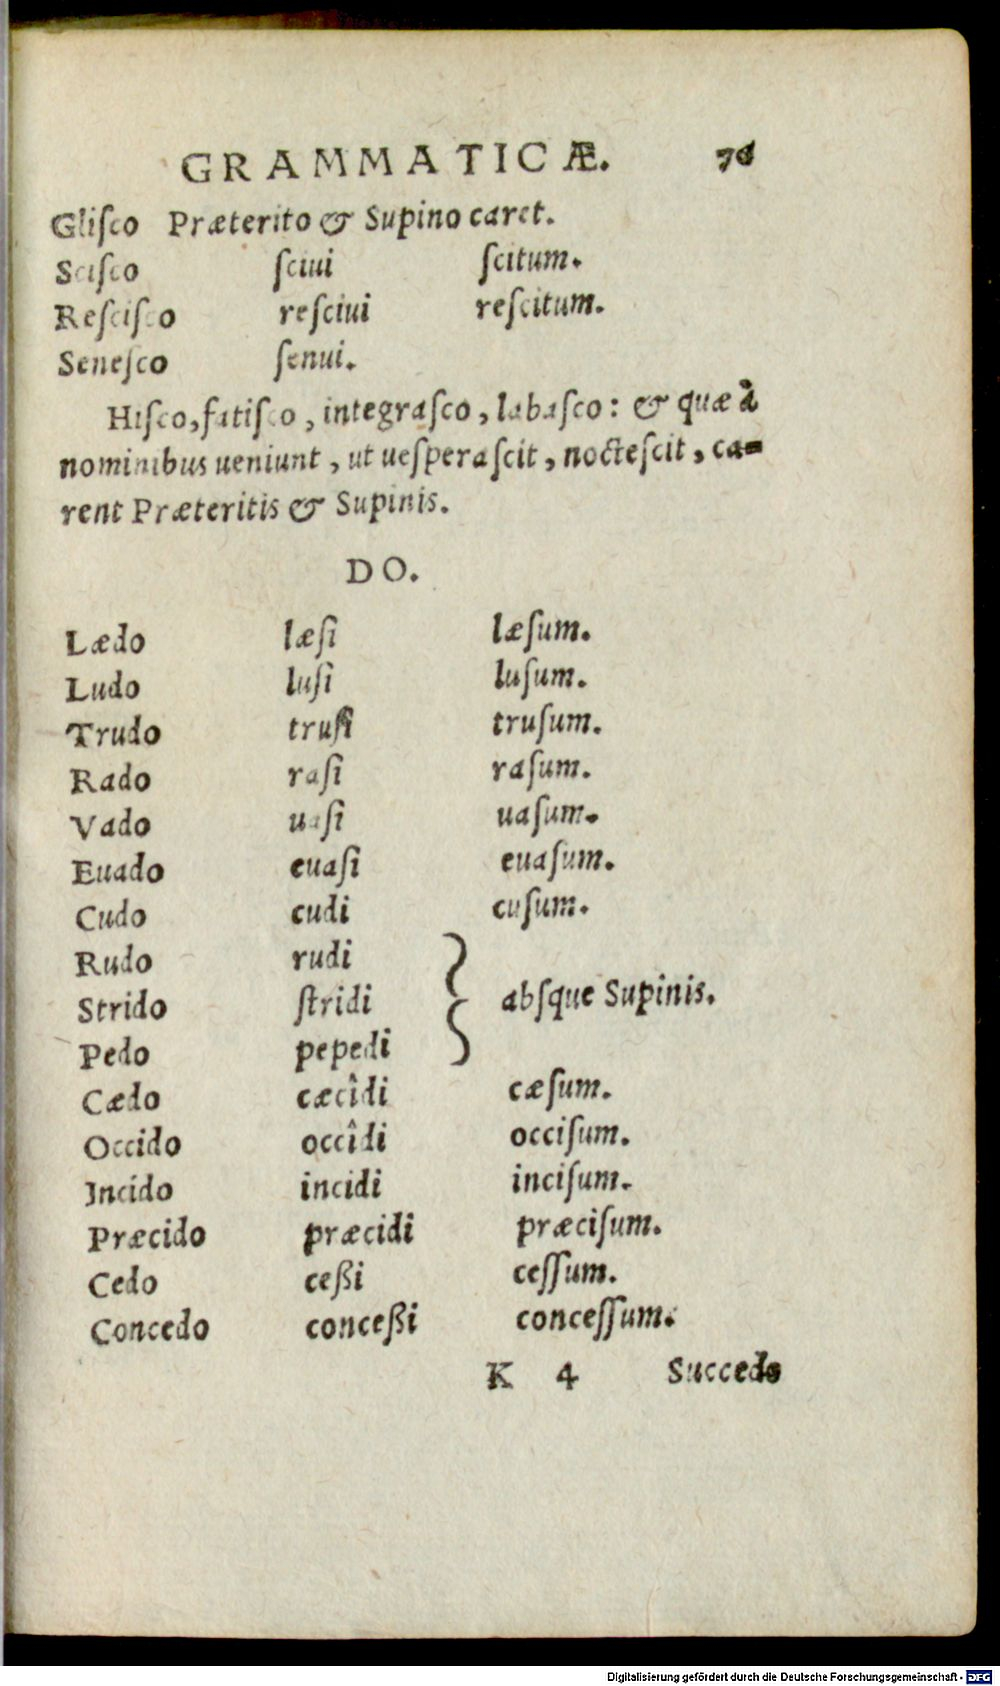 GRAMMATICÆ. 76
Gliſco Præterito & Supino caret.
Sciſco ſciui ſcitum.
Reſciſco reſciui reſcitum.
Seneſco ſenui.
Hiſco, fatiſco, integraſco, labaſco: & quæ à
nominibus ueniunt, ut ueſperaſcit, nocteſcit, ca=
rent Præteritis & Supinis.
DO.
Lædo læſi læſum.
Ludo luſi luſum.
Trudo truſi truſum.
Rado raſi raſum.
Vado uaſi uaſum.
Euado euaſi euaſum.
Cudo cudi cuſum.
Rudo rudi
Strido ſtridi abſque Supinis.
Pedo pepedi
Cædo cæcîdi cæſum.
Occido occîdi occiſum.
Incido incidi inciſum.
Præcido præcidi præciſum.
Cedo ceßi ceſſum.
Concedo conceßi conceſſum.
K 4 Succedo
Digitalisierung gefördert durch die Deutsche Forschungsgemeinschaft - DFG